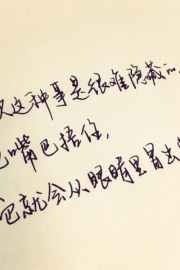 这种事是很难隐藏
嘴巴捂住，
它就会从眼睛里冒出